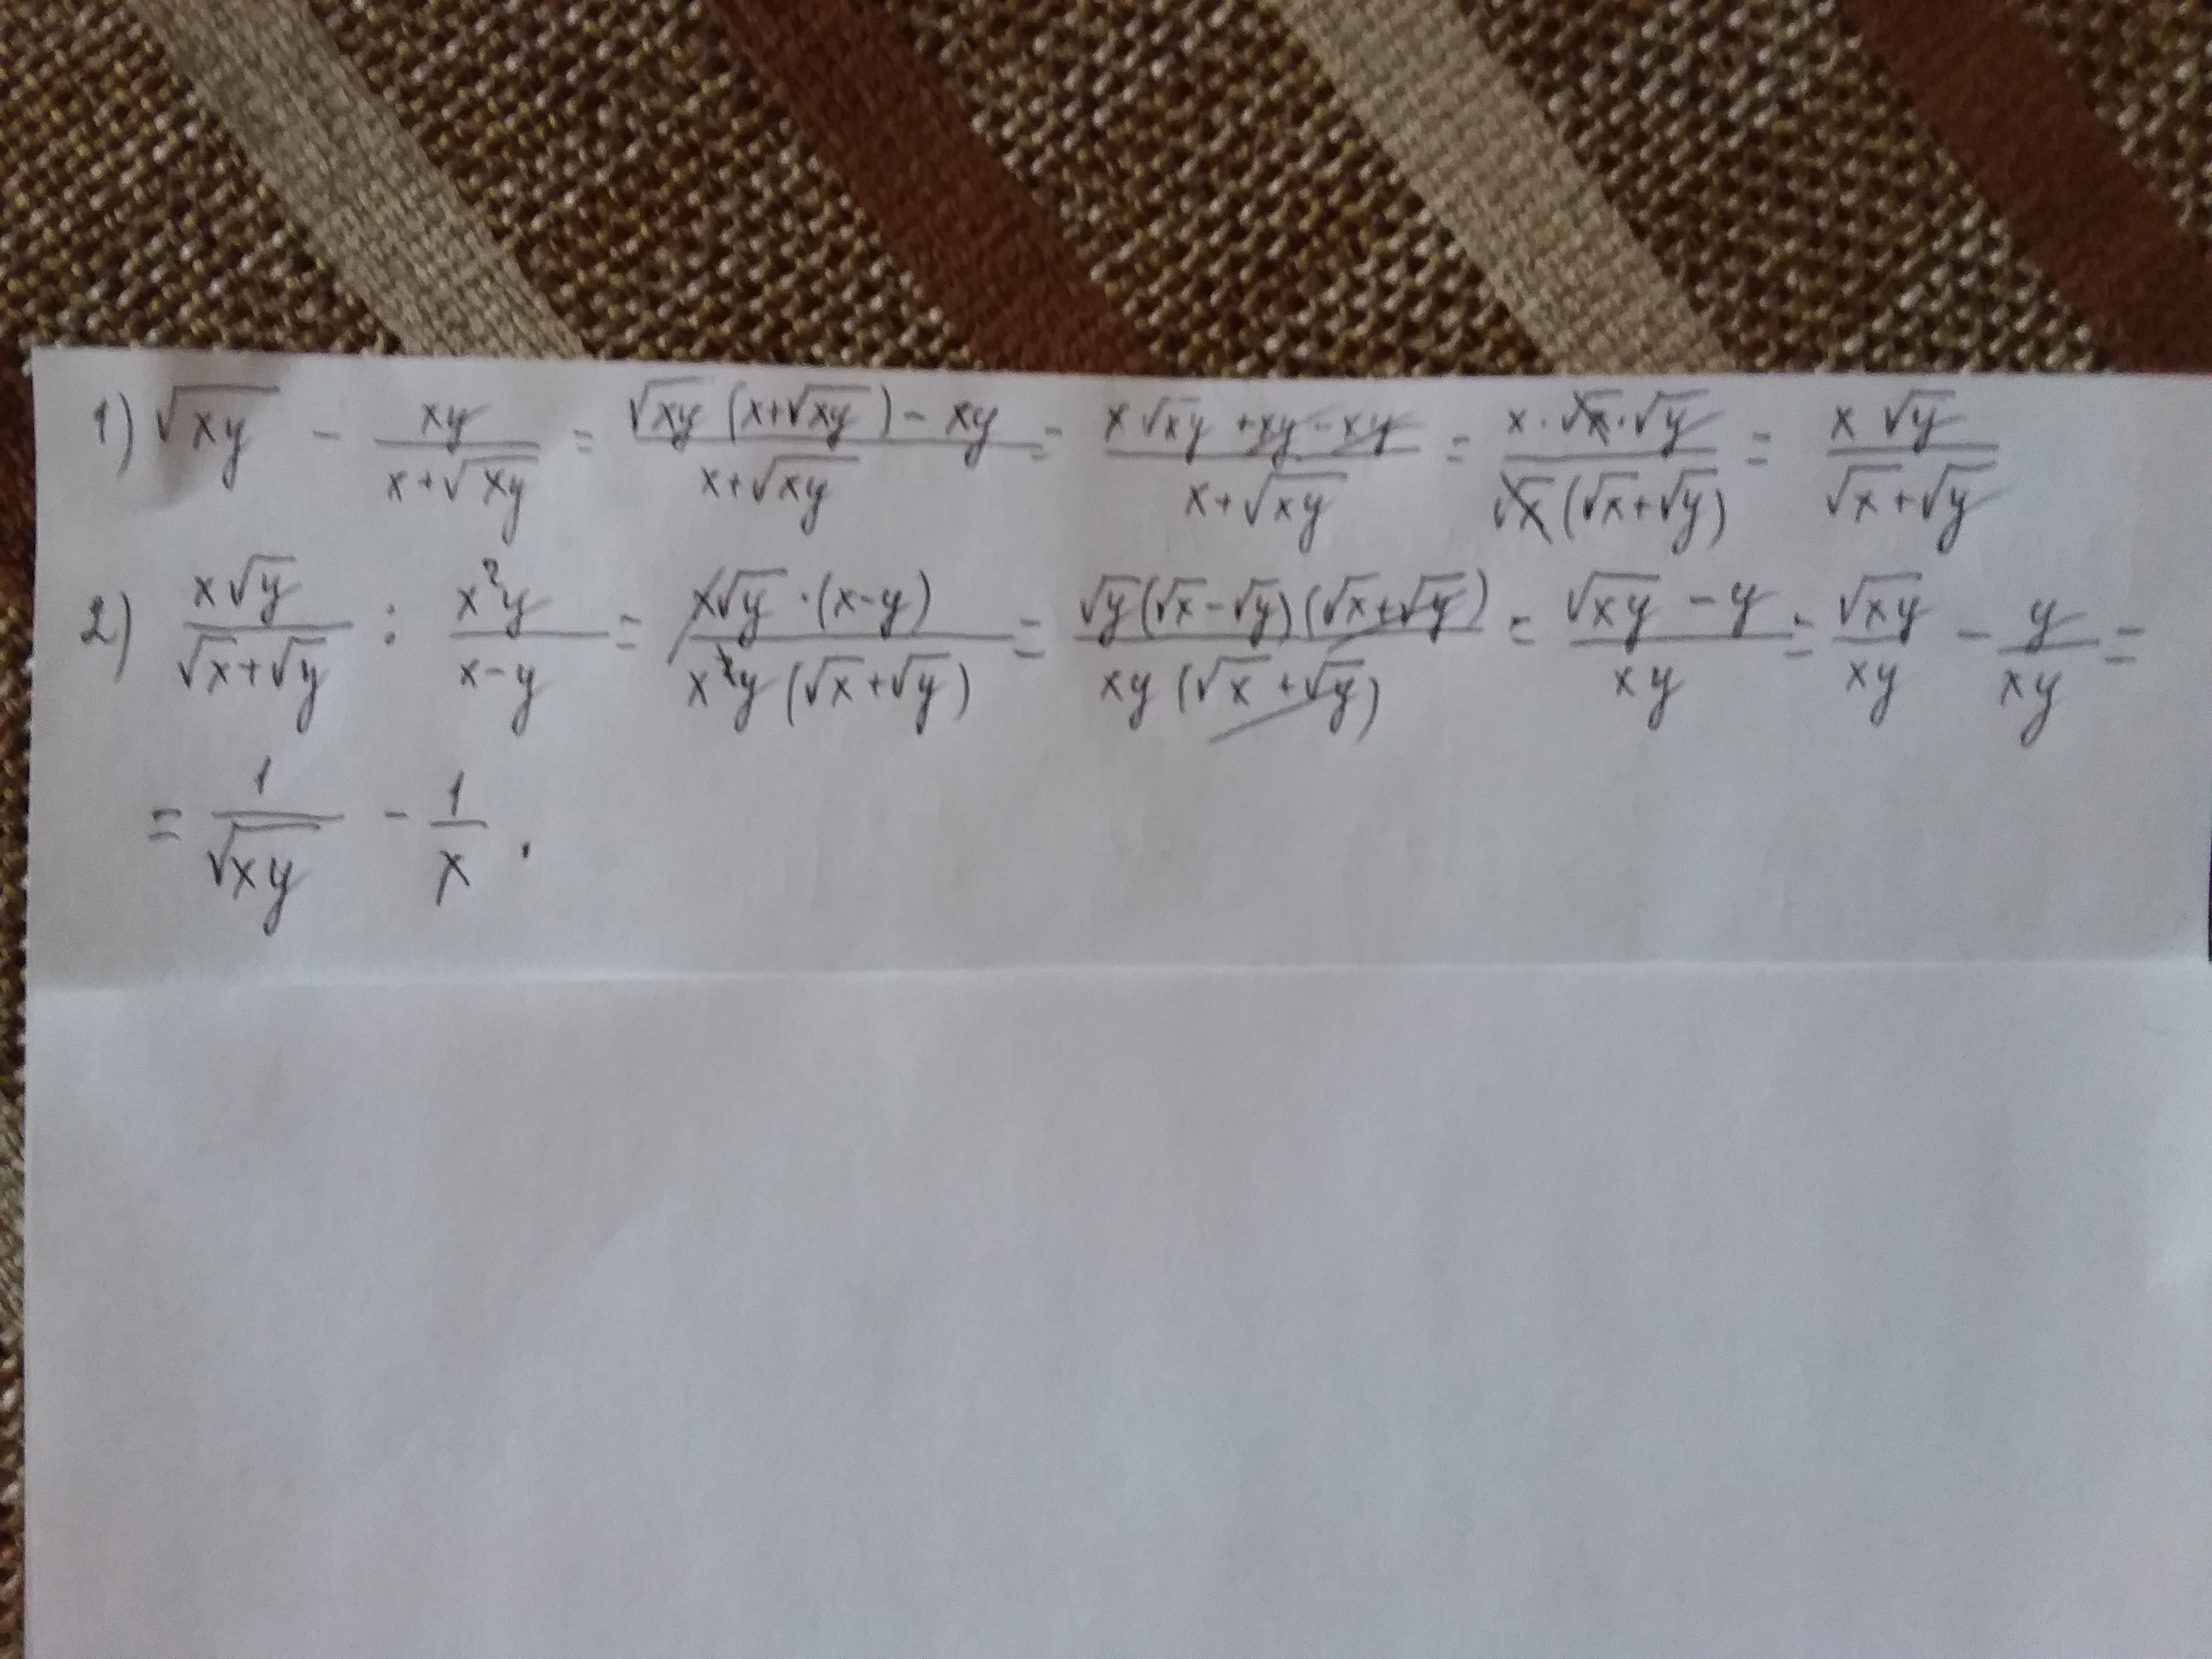 1) √xy - xy/(x+√xy) = (√xy (x+√xy) - xy)/(x+√xy) = (x√xy + xy - xy)/(x+√xy) = (x·√x·√y)/(√x(√x+√y)) = x√y/(√x+√y)
2) x√y/(√x+√y) : x²y/(x-y) = (x√y·(x-y))/(x²y(√x+√y)) = (√y(√x-√y)(√x+√y))/(xy(√x+√y)) = (√xy - y)/xy = √xy/xy - y/xy =
= 1/√xy - 1/x .